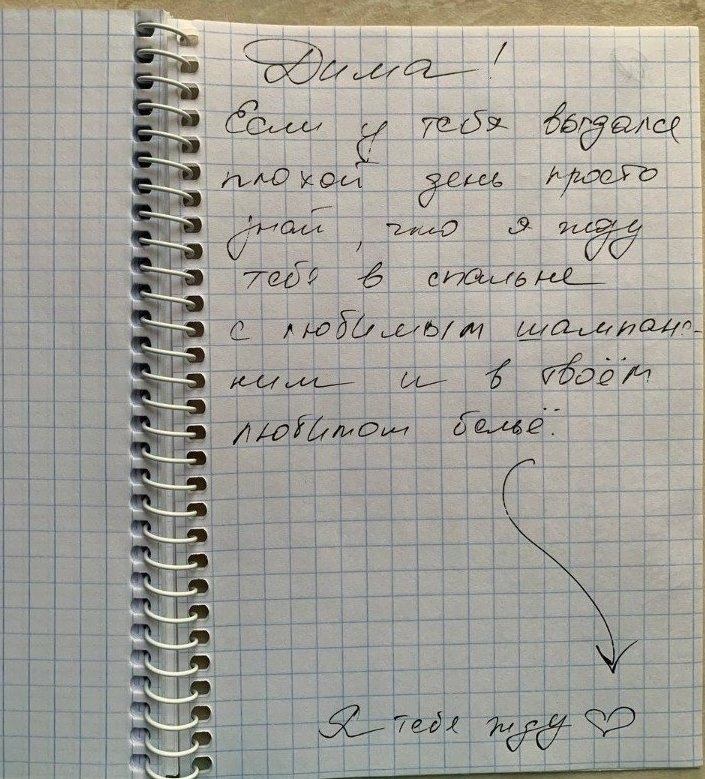 Дима!
Если у тебя выдался
плохой день просто
знай, что я жду
тебя в спальне
с любимым шампан-
ним и в твоём
любимом бельё.
Я тебя жду ♡